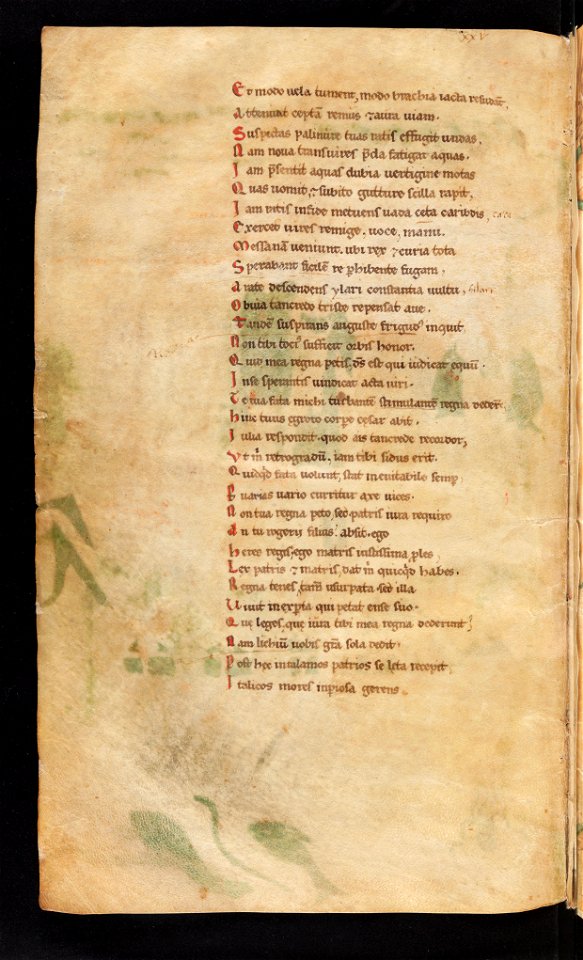 XXV
Et modo uela tument, modo brachia iacta residũt,
Attenuat ceptã remus ⁊ aura uiam.
Suspectas palinure tuas ratis effugit undas,
Nam noua trans uires p̃da fatigat aquas.
Iam p̃sentit aquas dubia uertigine motas
Quas uomit, ⁊ subito gutture scilla rapit,
Iam ratis infide metuens uada ceca caribdis,
Exercet uires remige, uoce, manu.
Messanã ueniunt, ubi rex ⁊ curia tota
Sperabant facilẽ re phibente fugam,
A rate descendens ylari constantia uultu, hilari
Obuia tancredo triste repensat aue.
Tandẽ suspirans auguste frigud' inquit
Non tibi toci' sufficit orbis honor.
Quid mea regna petis, d̃s est qui iudicat equũ.
Inse sperantis uindicat acta uiri.
Te tua fata michi turbantẽ stimulante regna deder̃
Hinc tuus egroto corpe cesar abit.
Iulia respondit. quod ais tancrede recordor,
Vt m̃ retrogradũ, iam tibi sidus erit.
Quicq̃d fata uolunt, stat ineuitabile semp,
Et uarias uario curritur axe uices.
Non tua regna peto, sed patris iura requiro
An tu rogerii filius? absit. ego
Heres regis, ego matris iustissima ples,
Lex patris ⁊ matris, dat m̃ quicq̃d habes.
Regna tenes, tam̃ usurpata sed illa
Viuit inexpta qui petat ense suo.
Que leges, que iura tibi mea regna dederunt?
Nam lichiũ uobis gr̃a sola dedit.
Post hec in talamos patrios se leta recepit,
Italicos mores inpiosa gerens.